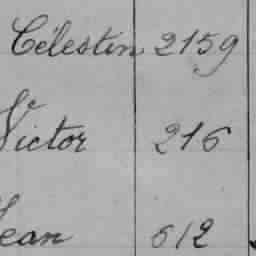 Célestin 2159
Victor 216
Jean 612